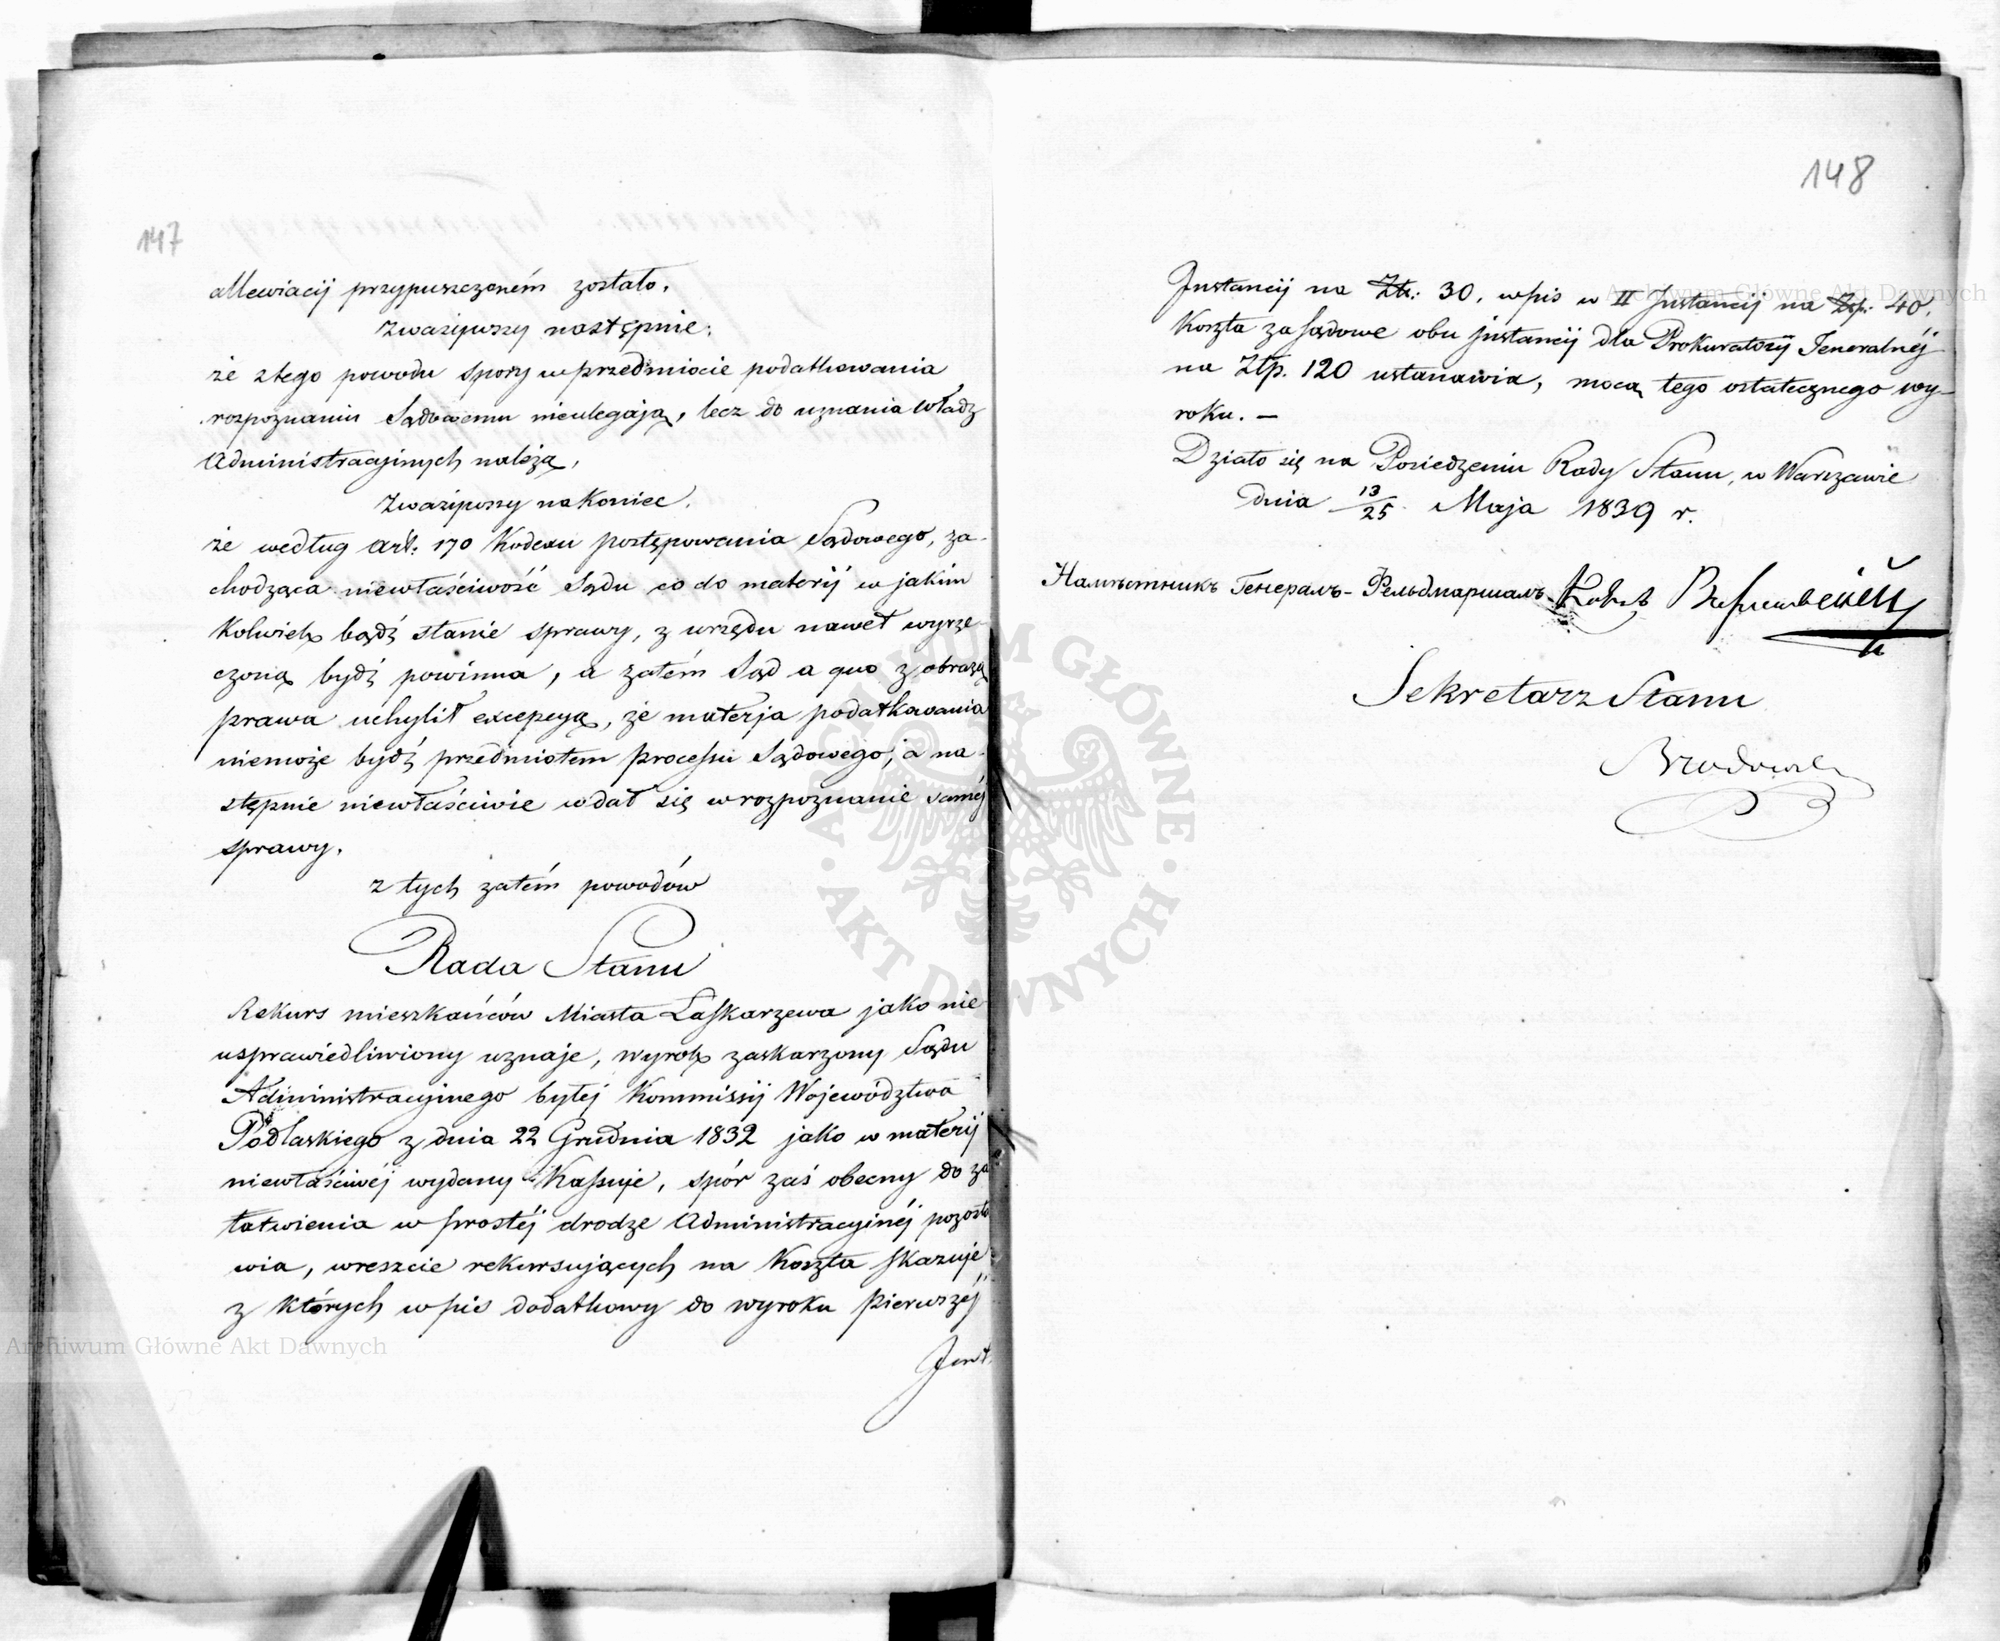 147
allewiacij przypuszczoném zostało.
Zważywszy następnie:
że ztego powodu spory wprzedmiocie podatkowania
rozpoznaniu Sądowemu nieulegają, lecz do uznania Władz
Administracyjnych należą,
Zważywszy nakoniec.
że według art: 170 Kodexu postępowania Sądowego, za-
chodząca niewłaściwość Sądu co do materij w jakim
kolwiek bądź stanie sprawy, z urzędu nawet wyrze-
czoną bydź powinna, a zatém Sąd a quo z obrazą
prawa uchylił excepcyą, że materja podatkowania
niemoże bydź przedmiotem processu Sądowego, a na-
stępnie niewłaściwie wdał się w rozpoznanie saméj
sprawy.
z tych zatém powodów
Rada Stanu
Rekurs mieszkańców Miasta Łaskarzewa jako nie
usprawiedliwiony uznaje, wyrok zaskarzony Sądu
Administracyjnego byłej Kommissij Województwa
Podlaskiego z dnia 22 Grudnia 1832 jako w materij
niewłaściwéj wydany kassuje, spór zaś obecny do za
łatwienia w prostéj drodze Administracyjnéj pozosta
wia, wreszcie rekursujących na Koszta skazuje
z których wpis dodatkowy do wyroku pierwszéj
Inst.
148
Instancij na Złt: 30. wpis w II Instancij na Złp: 40.
Koszta zasądowe obu instancij dla Prokuratorij Jeneralnéj
na Złp. 120 ustanawia, mocą tego ostatecznego wy-
roku. —
Działo się na Posiedzeniu Rady Stanu, w Warszawie
dnia 13/25 Maja 1839 r.
Намѣстникъ Генералъ-Фельдмаршалъ
Sekretarz Stanu
Archiwum Główne Akt Dawnych
Archiwum Główne Akt Dawnych
ARCHIWUM GŁÓWNE · AKT DAWNYCH ·